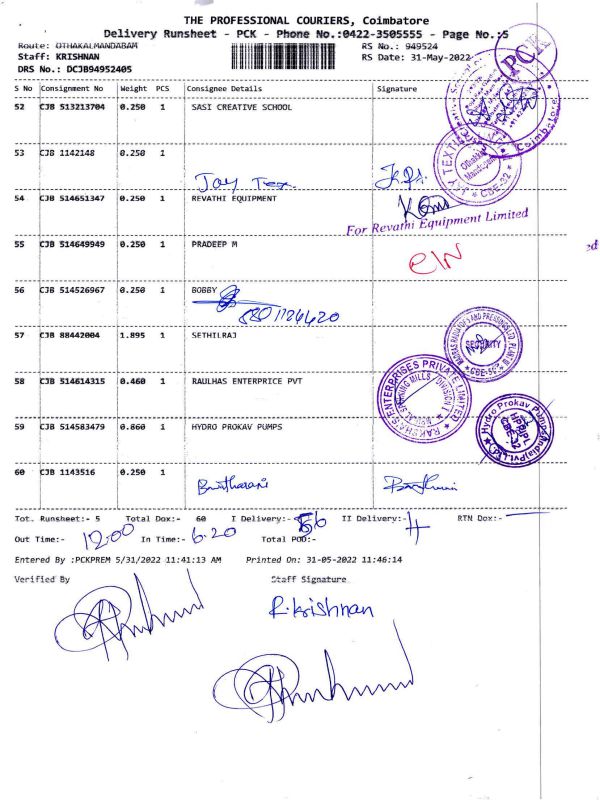 THE PROFESSIONAL COURIERS, Coimbatore
Delivery Runsheet - PCK - Phone No.:0422-3505555 - Page No.:5
Route: OTHAKALMANDABAM RS No.: 949524
Staff: KRISHNAN RS Date: 31-May-2022
DRS No.: DCJB94952405
S No Consignment No Weight PCS Consignee Details Signature
52 CJB 513213704 0.250 1 SASI CREATIVE SCHOOL
PCK
Coimbatore
53 CJB 1142148 0.250 1
Jay Tex
CBE-32
54 CJB 514651347 0.250 1 REVATHI EQUIPMENT
For Revathi Equipment Limited
55 CJB 514649949 0.250 1 PRADEEP M
56 CJB 514526967 0.250 1 BOBBY
57 CJB 88442004 1.895 1 SETHILRAJ
SECURITY
58 CJB 514614315 0.460 1 RAULHAS ENTERPRICE PVT
59 CJB 514583479 0.860 1 HYDRO PROKAV PUMPS
Hydro Prokav Pumps (India) Pvt. Ltd.
HPPIPL
CBE-32
60 CJB 1143516 0.250 1
Tot. Runsheet:- 5 Total Dox:- 60 I Delivery:- 56 II Delivery:- 4 RTN Dox:-
Out Time:- 12.00 In Time:- 6.20 Total POD:-
Entered By :PCKPREM 5/31/2022 11:41:13 AM Printed On: 31-05-2022 11:46:14
Verified By Staff Signature
R.Krishnan